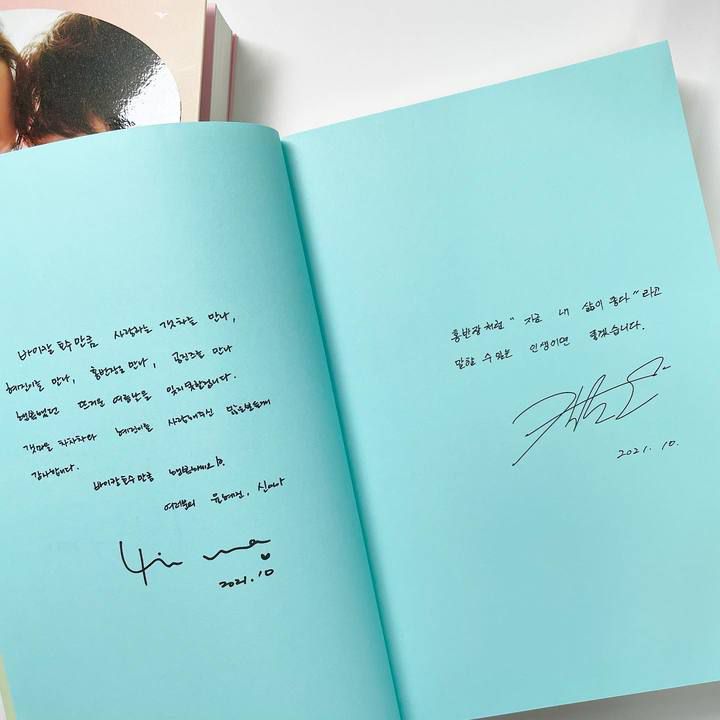 바이칼 호수만큼 사랑하는 갯차를 만나,
혜진이를 만나, 홍반장을 만나, 공진즈를 만나
행복했던 뜨거운 여름날을 잊지못할겁니다.
갯마을 차차차와 혜진이를 사랑해주신 많은분들께
감사합니다.
바이칼 호수만큼 행복하세요
여러분의 윤혜진, 신민아
2021.10
홍반장처럼 "지금 내 삶이 좋다"라고
말할 수 있는 인생이면 좋겠습니다.
2021. 10.